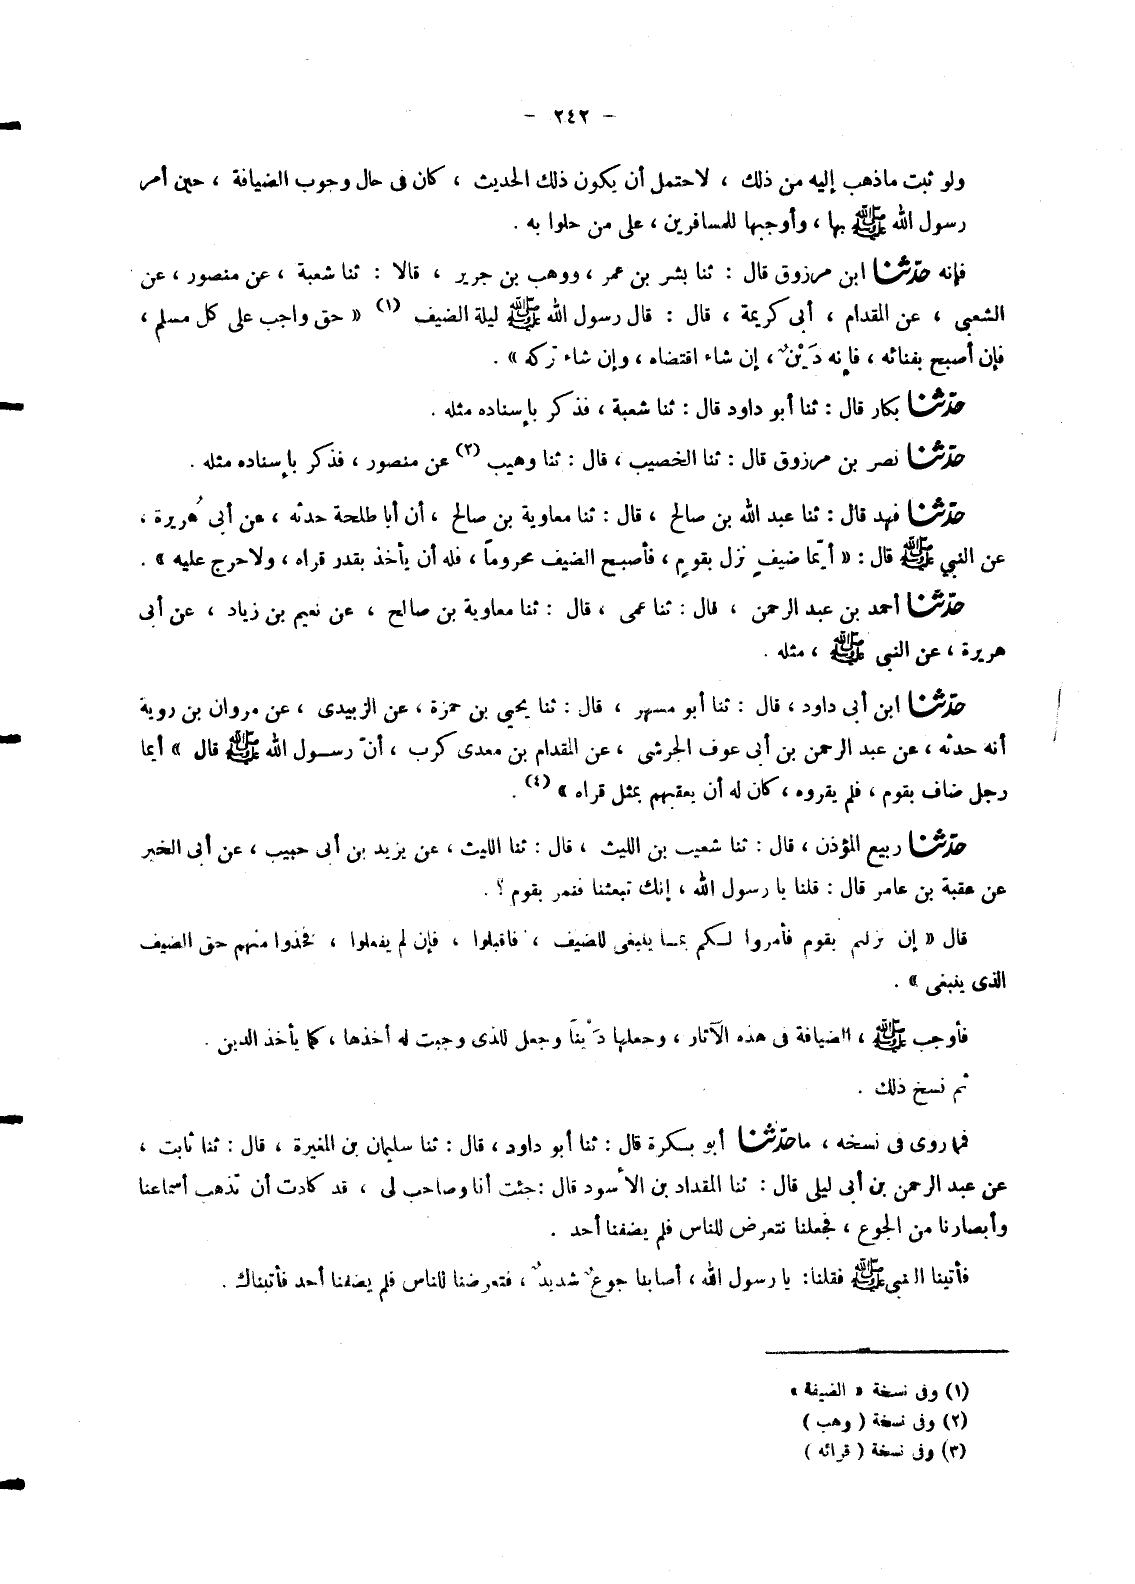 - ٢٤٢ -
ولو ثبت ماذهب إليه من ذلك ، لاحتمل أن يكون ذلك الحديث ، كان فى حال وجوب الضيافة ، حين أمر
رسول الله ﷺ بها ، وأوجبها للمسافرين ، على من حلوا به .
فإنه حدّثنا ابن مرزوق قال : ثنا بشر بن عمر ، ووهب بن جرير ، قالا : ثنا شعبة ، عن منصور ، عن
الشعبى ، عن المقدام ، أبى كريمة ، قال : قال رسول الله ﷺ ليلة الضيف (١) « حق واجب على كل مسلم ،
فإن أصبح بفنائه ، فإنه دَيْنٌ ، إن شاء اقتضاه ، وإن شاء تركه » .
حدّثنا بكار قال : ثنا أبو داود قال : ثنا شعبة ، فذكر بإسناده مثله .
حدّثنا نصر بن مرزوق قال : ثنا الخصيب ، قال : ثنا وهيب (٢) عن منصور ، فذكر بإسناده مثله .
حدّثنا فهد قال : ثنا عبد الله بن صالح ، قال : ثنا معاوية بن صالح ، أن أبا طلحة حدثه ، عن أبى هُريرة ،
عن النبي ﷺ قال : « أيّما ضيفٍ نزل بقومٍ ، فأصبح الضيف محروماً ، فله أن يأخذ بقدر قراه ، ولاحرج عليه » .
حدّثنا أحمد بن عبد الرحمن ، قال : ثنا عمى ، قال : ثنا معاوية بن صالح ، عن نعيم بن زياد ، عن أبى
هريرة ، عن النبى ﷺ ، مثله .
حدّثنا ابن أبى داود ، قال : ثنا أبو مسهر ، قال : ثنا يحيي بن حمزة ، عن الزبيدى ، عن مروان بن روبة
أنه حدثه ، عن عبد الرحمن بن أبى عوف الجرشى ، عن المقدام بن معدى كرب ، أنّ رسول الله ﷺ قال » أيما
رجل ضاف بقوم ، فلم يقروه ، كان له أن يعقبهم بمثل قراه » (٤) .
حدّثنا ربيع المؤذن ، قال : ثنا شعيب بن الليث ، قال : ثنا الليث ، عن يزيد بن أبى حبيب ، عن أبى الخير
عن عقبة بن عامر قال : قلنا يا رسول الله ، إنك تبعثنا فنمر بقوم ؟ .
قال « إن نزلتم بقوم فأمروا لكم بما ينبغى للضيف ، فاقبلوا ، فإن لم يفعلوا ، فخذوا منهم حق الضيف
الذى ينبغى » .
فأوجب ﷺ ، الضيافة فى هذه الآثار ، وجعلها دَيْناً وجعل للذى وجبت له أخذها ، كما يأخذ الدين .
ثم نسخ ذلك .
فما روى فى نسخه ، ما حدّثنا أبو بكرة قال : ثنا أبو داود ، قال : ثنا سليمان بن المغيرة ، قال : ثنا ثابت ،
عن عبد الرحمن بن أبى ليلى قال : ثنا المقداد بن الأسود قال : جئت أنا وصاحب لى ، قد كادت أن تذهب أسماعنا
وأبصارنا من الجوع ، فجعلنا نتعرض للناس فلم يضفنا أحد .
فأتينا النبى ﷺ فقلنا : يا رسول الله ، أصابنا جوعٌ شديدٌ ، فتعرضنا للناس فلم يضفنا أحد فأتيناك .
(١) وفى نسخة « الضيفة »
(٢) وفى نسخة ( وهب )
(٣) وفى نسخة ( قرائه )